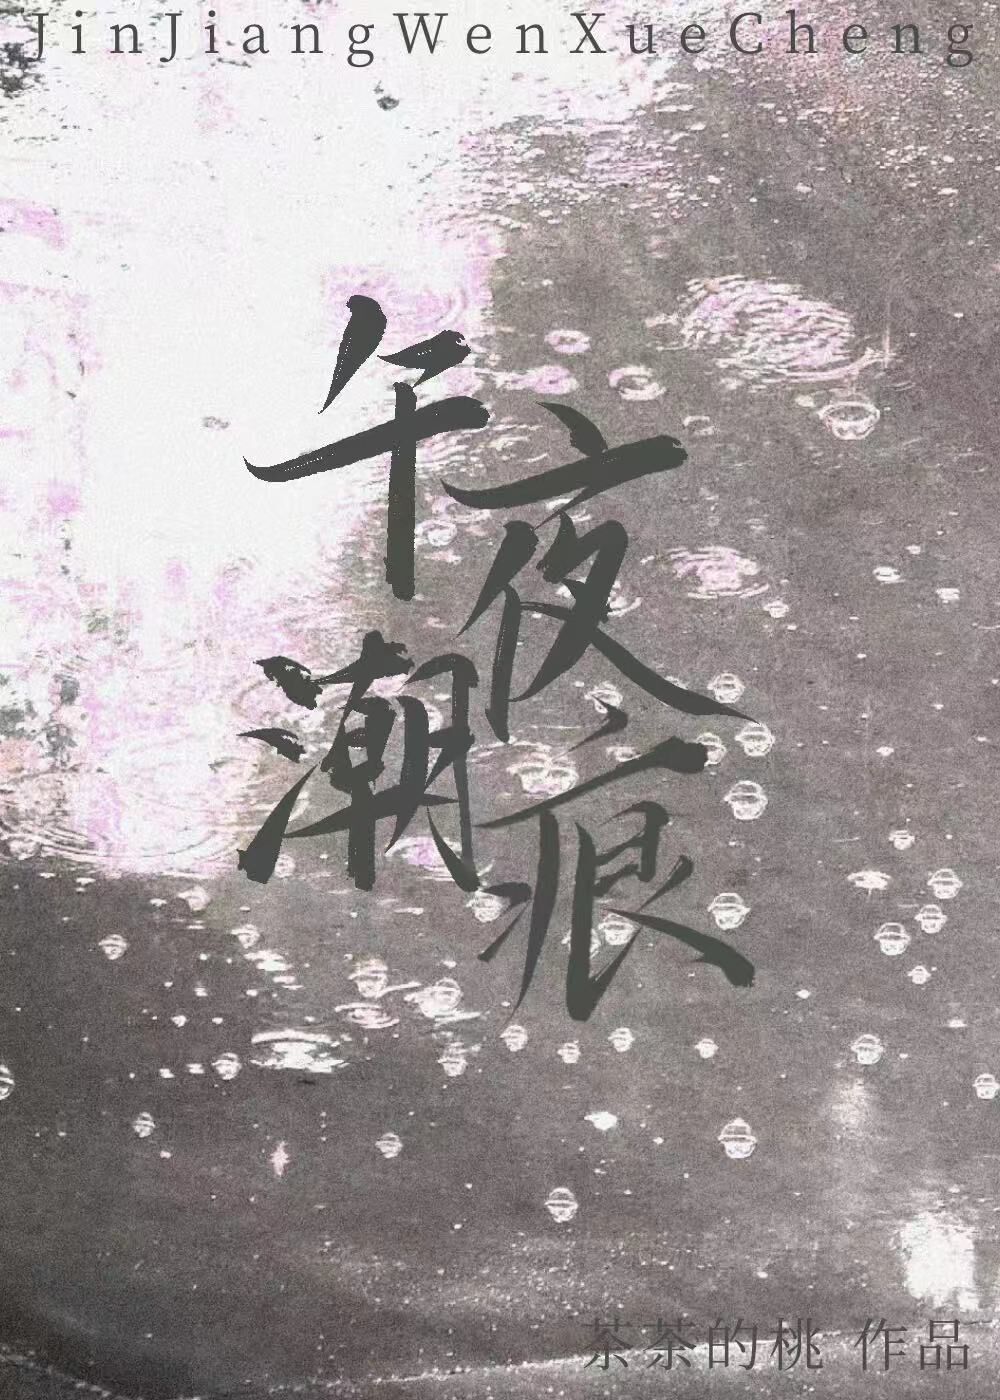 JinJiangWenXueCheng
午夜
潮痕
茶茶的桃 作品